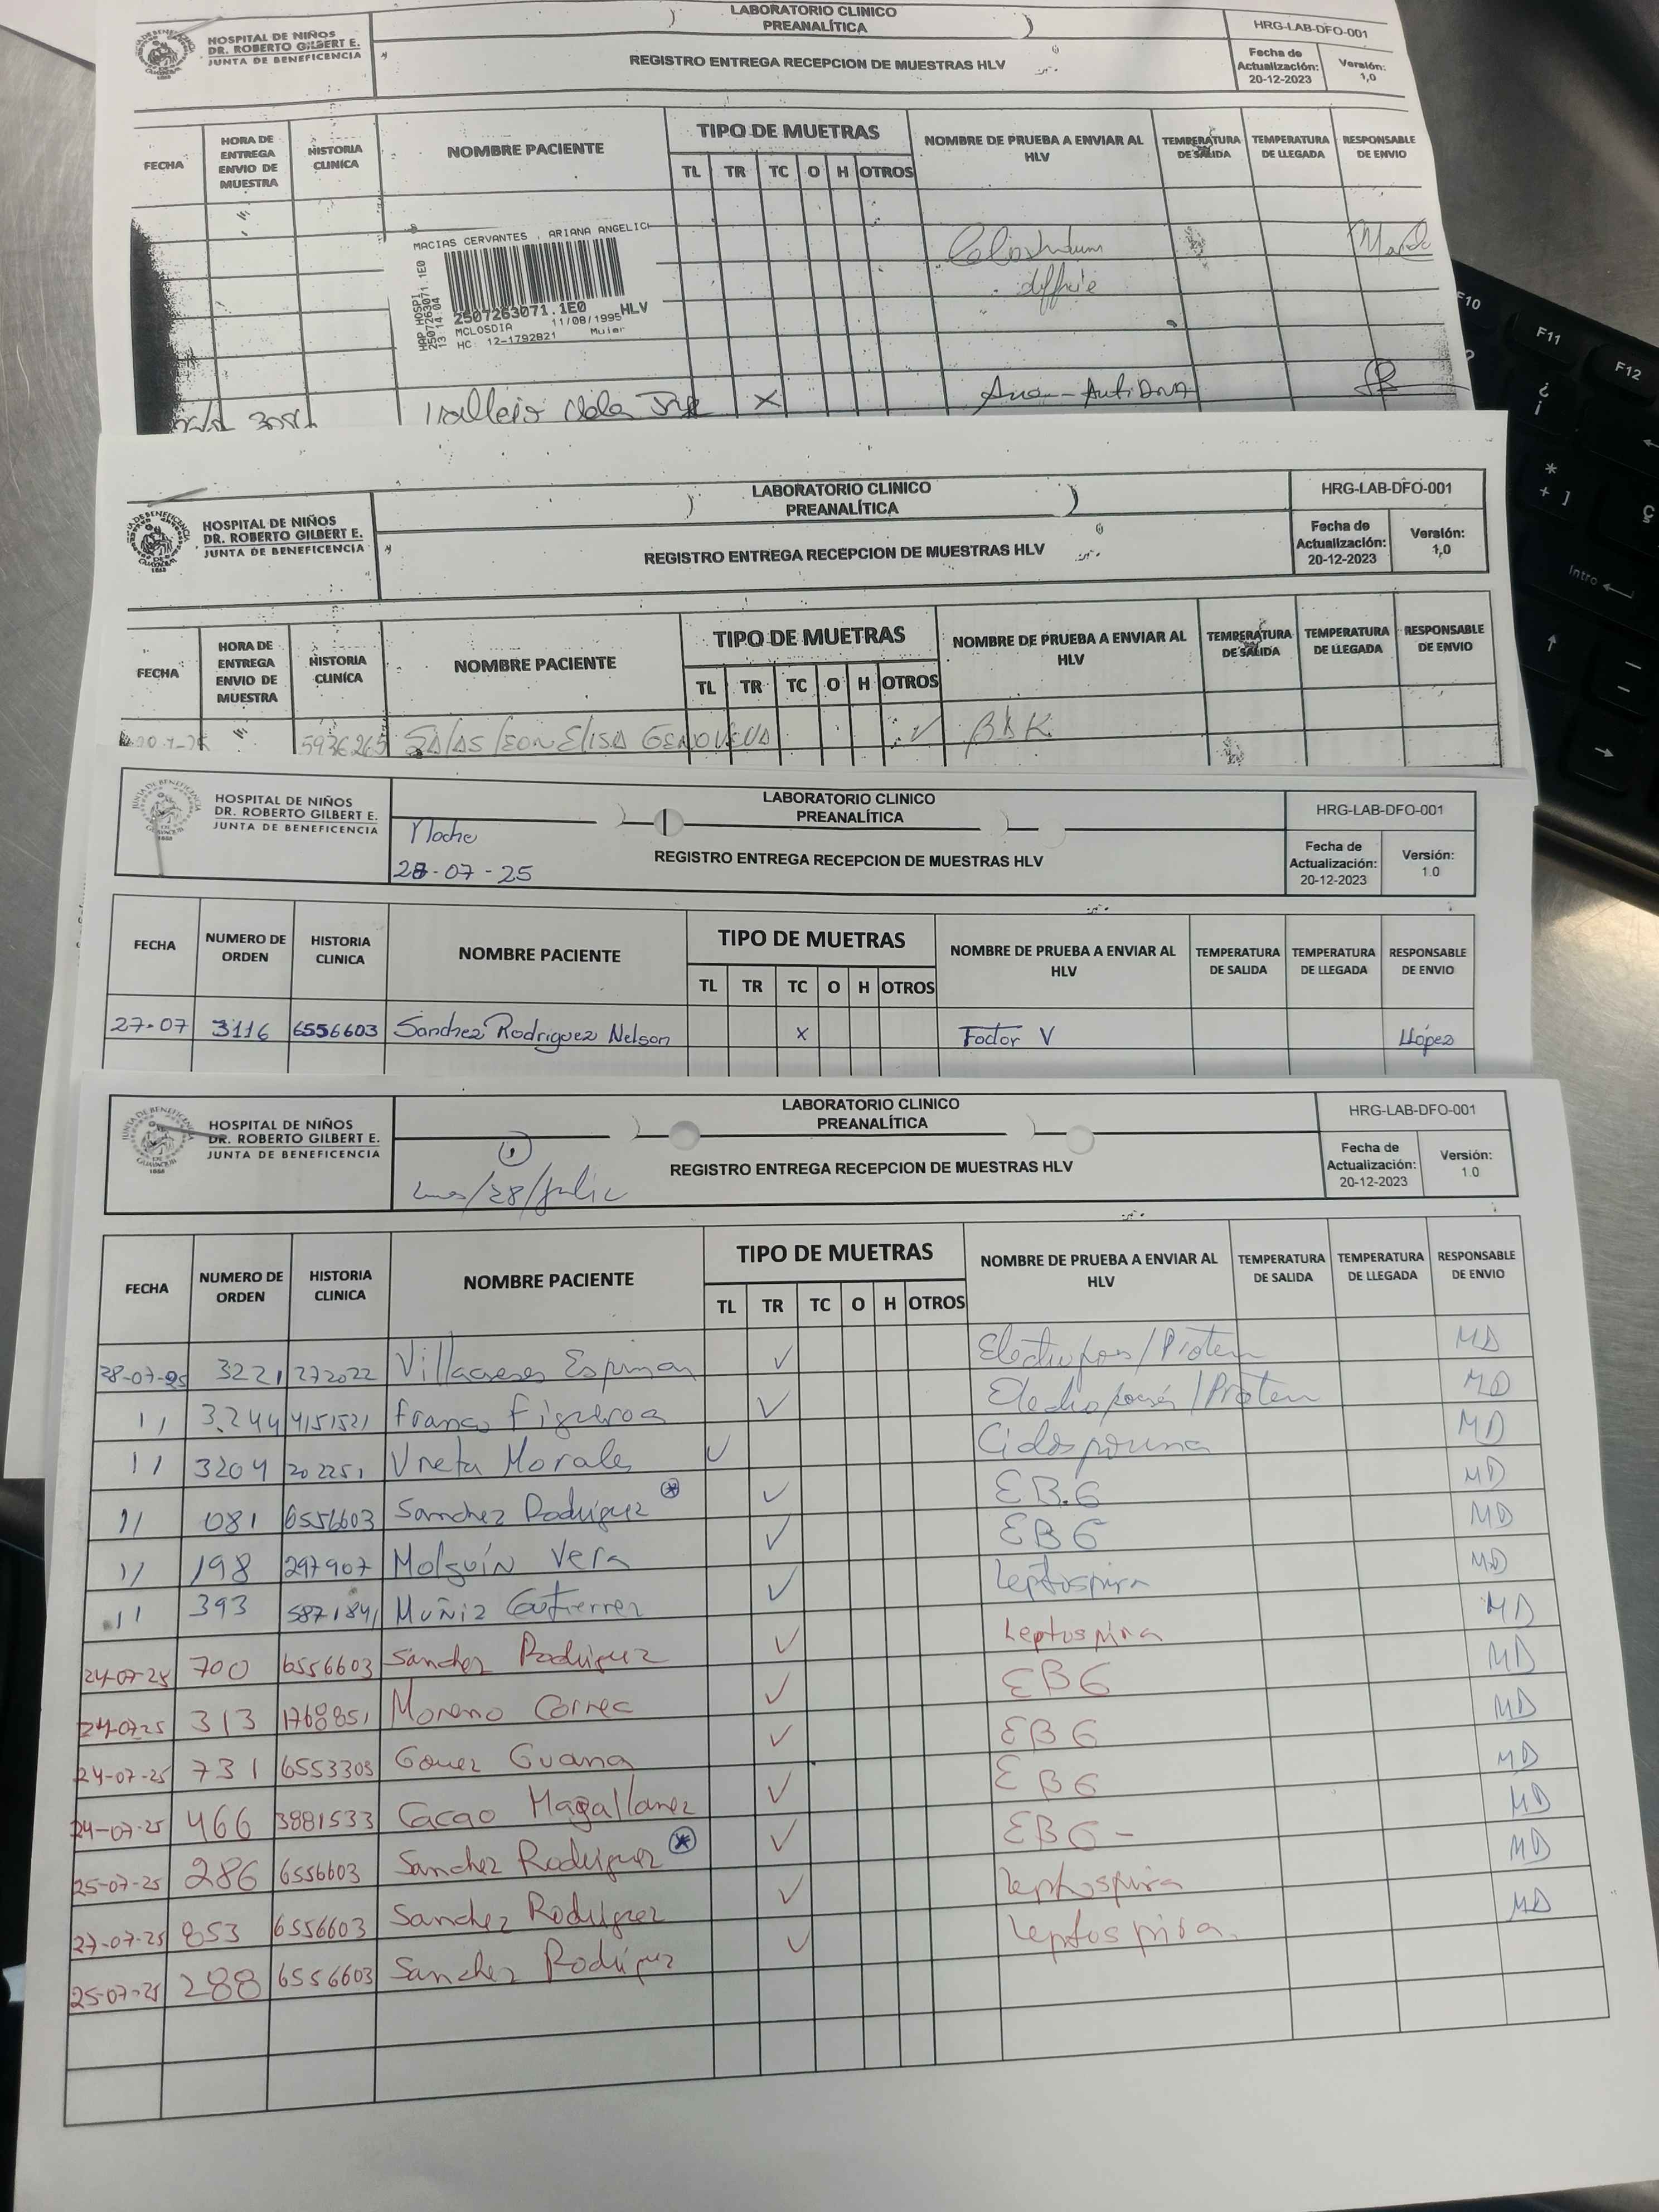 HOSPITAL DE NIÑOS
DR. ROBERTO GILBERT E.
JUNTA DE BENEFICENCIA
LABORATORIO CLINICO
PREANALÍTICA
REGISTRO ENTREGA RECEPCION DE MUESTRAS HLV
HRG-LAB-DFO-001
Fecha de Actualización: 20-12-2023
Versión: 1,0
FECHA HORA DE ENTREGA ENVIO DE MUESTRA HISTORIA CLINICA NOMBRE PACIENTE TIPO DE MUETRAS NOMBRE DE PRUEBA A ENVIAR AL HLV TEMPERATURA DE SALIDA TEMPERATURA DE LLEGADA RESPONSABLE DE ENVIO
TL TR TC O H OTROS
MACIAS CERVANTES , ARIANA ANGELIC
HAP HOSPI
2507263071.1E0
13:14:04
2507263071.1E0 HLV
MCLOSDIA 11/08/1995
HC: 12-1792821 Mujer
diffcie
X
HOSPITAL DE NIÑOS
DR. ROBERTO GILBERT E.
JUNTA DE BENEFICENCIA
LABORATORIO CLINICO
PREANALÍTICA
REGISTRO ENTREGA RECEPCION DE MUESTRAS HLV
HRG-LAB-DFO-001
Fecha de Actualización: 20-12-2023
Versión: 1,0
FECHA HORA DE ENTREGA ENVIO DE MUESTRA HISTORIA CLINICA NOMBRE PACIENTE TIPO DE MUETRAS NOMBRE DE PRUEBA A ENVIAR AL HLV TEMPERATURA DE SALIDA TEMPERATURA DE LLEGADA RESPONSABLE DE ENVIO
TL TR TC O H OTROS
5936265 SALAS LEON ELISA GENOVEVA ✓ BAK
HOSPITAL DE NIÑOS
DR. ROBERTO GILBERT E.
JUNTA DE BENEFICENCIA
LABORATORIO CLINICO
PREANALÍTICA
Noche
28-07-25
REGISTRO ENTREGA RECEPCION DE MUESTRAS HLV
HRG-LAB-DFO-001
Fecha de Actualización: 20-12-2023
Versión: 1.0
FECHA NUMERO DE ORDEN HISTORIA CLINICA NOMBRE PACIENTE TIPO DE MUETRAS NOMBRE DE PRUEBA A ENVIAR AL HLV TEMPERATURA DE SALIDA TEMPERATURA DE LLEGADA RESPONSABLE DE ENVIO
TL TR TC O H OTROS
27-07 3116 6556603 Sanchez Rodriguez Nelson x Factor V LLópez
HOSPITAL DE NIÑOS
DR. ROBERTO GILBERT E.
JUNTA DE BENEFICENCIA
LABORATORIO CLINICO
PREANALÍTICA
/28/julio
REGISTRO ENTREGA RECEPCION DE MUESTRAS HLV
HRG-LAB-DFO-001
Fecha de Actualización: 20-12-2023
Versión: 1.0
FECHA NUMERO DE ORDEN HISTORIA CLINICA NOMBRE PACIENTE TIPO DE MUETRAS NOMBRE DE PRUEBA A ENVIAR AL HLV TEMPERATURA DE SALIDA TEMPERATURA DE LLEGADA RESPONSABLE DE ENVIO
TL TR TC O H OTROS
28-07-25 3221 272022 Villacreses Espinoza ✓ MD
11 3244 4151521 Franco Figueroa ✓ MD
11 3204 202251 Vneta Morales ✓ MD
11 081 6556603 Sanchez Rodriguez * ✓ EB.6 MD
11 198 297907 Molguín Vera ✓ EB6 MD
11 393 5871841 Muñiz Gutierrez ✓ Leptospira MD
24-07-25 700 6556603 Sanchez Rodriguez ✓ Leptospira MD
24-07-25 313 1768851 Moreno Correa ✓ EB6 MD
24-07-25 731 6553303 Gomez Guana ✓ EB6 MD
24-07-25 466 3881533 Cacao Magallanez ✓ EB6 MD
25-07-25 286 6556603 Sanchez Rodriguez * ✓ EB6 - MD
27-07-25 853 6556603 Sanchez Rodriguez ✓ Leptospira MD
25-07-25 288 6556603 Sanchez Rodriguez ✓ Leptospira. MD
F10
F11
F12
¿
¡
*
+ ]
Ç
Intro